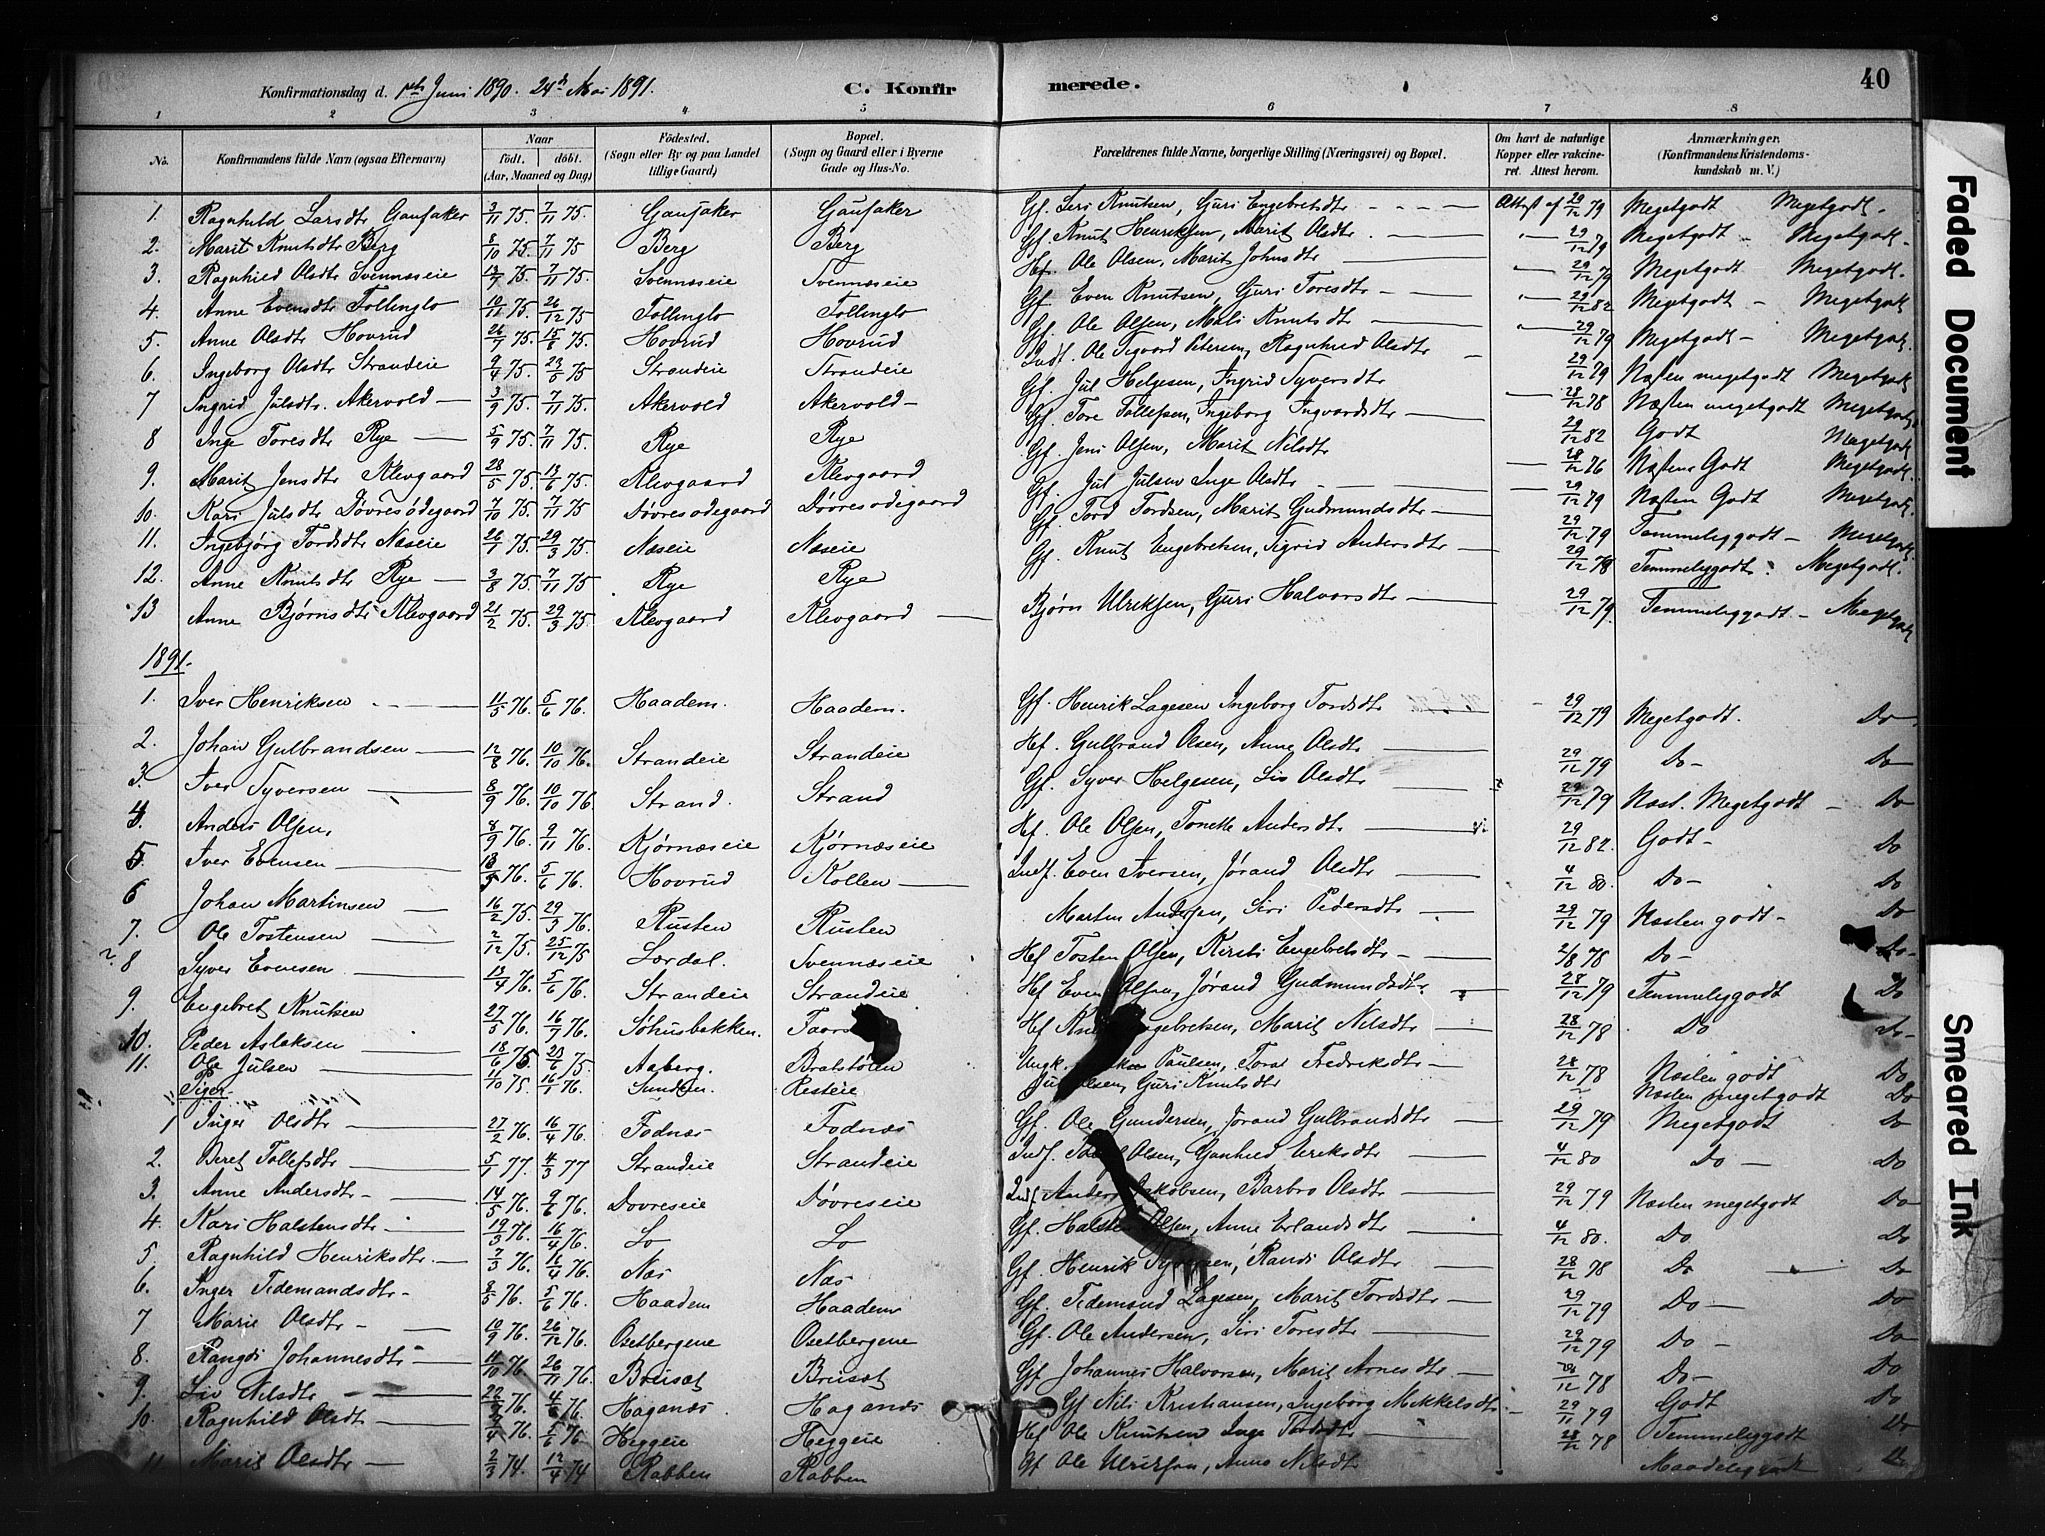 Konfirmationsdag d. 1ste Juni 1890. 24de Mai 1891. C. Konfirmerede. 40
1 2 3 4 5 6 7 8
No. Konfirmandens fulde Navn (ogsaa Efternavn) Naar født. døbt. (Aar, Maaned og Dag) Födested. (Sogn eller By og paa Landet tillige Gaard) Bopæl. (Sogn og Gaard eller i Byerne Gade og Hus-No. Forældrenes fulde Navne, borgerlige Stilling (Næringsvei) og Bopæl. Om havt de naturlige Kopper eller vakcineret. Attest herom. Anmærkninger. (Konfirmandens Kristendomskundskab m. V.)
1. Ragnhild Larsdtr Gaufaker 3/11 75. 7/11 75. Gaufaker Gaufaker Gf. Knutsen, Guri Engebretsdtr Attest af 29/12 79 Megetgodt Megetgodt.
2. Marit Knutsdtr Berg 8/10 75. 7/11 75 Berg Berg Gf. Knut Henriksen, Marit Olsdtr 29/12 79 Megetgodt Megetgodt.
3. Ragnhild Olsdtr Svennæseie 75. 7/11 75. Svennæseie Svennæseie Hf. Ole Olsen, Marit Johnsdtr 29/12 79 Megetgodt Megetgodt.
4. Anne Evensdtr Follinglo 10/11 75. 26/12 75 Follinglo Follinglo Gf. Even Knutsen, Guri Toresdtr 29/12 82 Megetgodt Megetgodt
5. Anne Olsdtr Hovrud 75. 15/8 75. Hovrud Hovrud Gf. Ole Olsen, Mali Knutsdtr 29/12 79 Megetgodt Megetgodt.
6. Ingeborg Olsdtr Strandeie 9/4 75. 23/5 75 Strandeie Strandeie Indf. Ole Sigvard Petersen, Ragnhild Olsdtr 29/12 79 Næsten megetgodt Megetgodt
7 Ingrid Julsdtr. Akervold 3/9 75. 7/11 75. Akervold Akervold Gf. Jul Helgesen, Ingrid Syversdtr 28/12 78 Næsten megetgodt Megetgodt
8 Inge Toresdtr Rye 5/9 75. 7/11 75. Rye Rye Gf. Tore Tollefsen, Ingeborg Ingvardsdtr 29/12 82 Godt Megetgodt
9. Marit Jensdtr Klevgaard 28/5 75. 13/6 75. Klevgaard Klevgaard Gf. Jens Olsen, Marit Nilsdtr 28/12 76 Næsten Godt Megetgodt.
10. Kari Julsdtr Dövresödegaard 7/10 75. 7/11 75 Dövresödegaard Dövresödegaard Gf. Jul Julsen Inge Olsdtr 29/12 79 Næsten Godt Megetgodt.
11. Ingebjørg Tordsdtr Næseie 26/1 75. 29/3 75. Næseie Næseie Gf. Tord Tordsen, Marit Gudmundsdtr 29/12 79 Temmeliggodt Megetgodt
12. Anne Knutsdtr Rye 3/8 75. 7/11 75. Rye Rye Gf. Knut Engebretsen, Sigrid Andersdtr 29/12 78 Temmeliggodt. Megetgodt.
13 Anne Bjørnsdtr Klevgaard 21/2 75. 29/3 75. Klevgaard Klevgaard Bjørn Ulriksen, Guri Halvorsdtr 29/12 79. Temmeliggodt Megetgodt
1891.
1. Iver Henriksen 11/5 76. 5/6 76. Haadem. Haadem. Gf. Henrik Lagesen Ingeborg Tordsdtr 29/12 79 Megetgodt. Do
2. Johan Gulbrandsen 12/8 76. 10/10 76. Strandeie Strandeie Hf. Gulbrand Olsen, Anne Olsdtr 29/12 79 Do Do
3. Iver Syversen 8/9 76. 10/10 76 Strand. Strand Gf. Syver Helgesen, Liv Olsdtr 29/12 79 Næst. Megetgodt Do
4. Anders Olsen, 8/9 76. 9/11 76. Kjørnæseie Kjørnæseie Hf. Ole Olsen, Andersdtr 29/12 82. Godt Do
5. Iver Evensen 76. 5/6 76. Hovrud Kollen Indf. Even Iversen, Jørand Olsdtr 4/12 80. Do Do
6 Johan Martinsen 16/2 75. 29/3 76. Rusten Rusten Martin Andersen, Siri Pedersdtr 29/12 79 Næsten godt Do
7. Ole Tostensen 2/12 75. 25/12 75 Lærdal. Svennæseie Hf Tosten Olsen, Kirsti Engebretsdtr 2/8 78 Do Do
8 Syver Evensen 13/4 76. 5/6 76. Strandeie Strandeie Hf Even Olsen, Jørand Gudmundsdtr. 28/12 79 Temmeliggodt Do
9. Engebret Knutsen 27/5 76. 16/7 76. Søhusbakken. Hf Engebretsen, Marit Nilsdtr 28/12 78 Do do
10. Peder Aslaksen 18/6 75 75. Aaberg. Bratstøien Ungk. Paulsen, Fredriksdtr 28/12 78 Næsten godt Do
11. Ole Julsen 11/10 75. 16/1 76. Resteie Guri Knutsdtr Næsten megetgodt Do
Piger.
1 Inger Olsdtr 27/2 76. 16/4 76. Fodnæs Fodnæs Gf. Ole Gundersen, Jørand Gulbrandsdtr 29/12 79 Megetgodt Do
2. Beret Tollefsdtr 5/1 77. 4/3 77 Strandeie Strandeie Indf. Olsen, Gunhild Eriksdtr 4/12 80 Do Do
3. Anne Andersdtr 14/5 76. 9/6 76. Dovreseie Dövreseie Indf Anders Jakobsen, Barbro Olsdtr 29/12 79 Næsten megetgodt Do
4. Kari Halstensdtr 19/3 76. 16/4 76. Lo Lo Gf. Halsten Olsen, Anne Erlandsdtr 4/12 80. Do Do
5 Ragnhild Henriksdtr. 7/3 76. 16/4 76. Næs Næs Gf. Henrik Syversen, Randi Olsdtr 28/12 78 Do Do
6. Inger Tidemandsdtr 8/5 76. 5/6 76. Haadem Haadem Gf. Tidemand Lagesen, Marit Tordsdtr 29/12 79 Do Do
7 Marie Olsdtr 10/9 76. 26/12 76. Osetbergene Osetbergene Gf. Ole Andersen, Siri Toresdtr 29/12 79 Do Do
8. Rangdi Johannesdtr 11/10 76. 26/11 76. Brusæt Brusæt Gf Johannes Halvorsen, Marit Arnesdtr 78 Do Do
9. Liv Nilsdtr 76. 76. Haganæs Haganæs Gf Nils Kristiansen, Ingeborg Mikkelsdtr 29/11 79 Godt Do
10. Ragnhild Olsdtr 76. 76 Heggeie Heggeie Hf Ole Knutsen Inge Tordsdtr 28/12 78 Temmeliggodt Do
11 Marit Olsdtr 2/3 74. 12/4 74 Rabben Rabben Gf Ole Ulriksen, Anne Nilsdtr Maadeliggodt Do
Faded Document
Smeared Ink